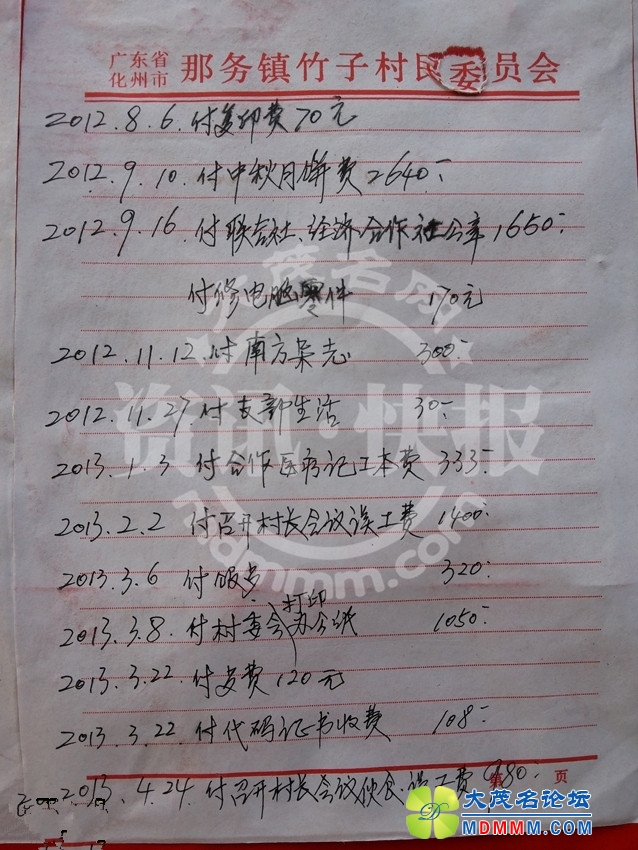 广东省
化州市
那务镇竹子村民委员会
2012.8.6.付复印费70元
2012.9.10.付中秋月饼费2640-
2012.9.16.付联合社、经济合作社公章1650-
付修电脑零件 170元
2012.11.12.付南方杂志 300-
2012.11.27.付支部生活 30-
2013.1.3 付合作医疗记工本费 333-
2013.2.2 付召开村长会议误工费 1400-
2013.3.6 付 320-
打印
2013.3.8.付村委会办公纸 1050-
2013.3.22.付 费120元
2013.3.22.付代码证书收费 108-
第 页
2013.4.24.付召开村长会议伙食.误工费980-
大茂名网
资讯·快报
mdmmm.com
大茂名论坛
MDMMM.COM